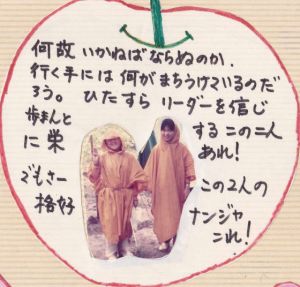 何故いかねばならぬのか.
行く手には何がまちうけているのだ
ろう。 ひたすら リーダーを信じ
歩まんと する この二人
に 栄 あれ!
でもさー この2人の
格好 ナンジャ
これ!